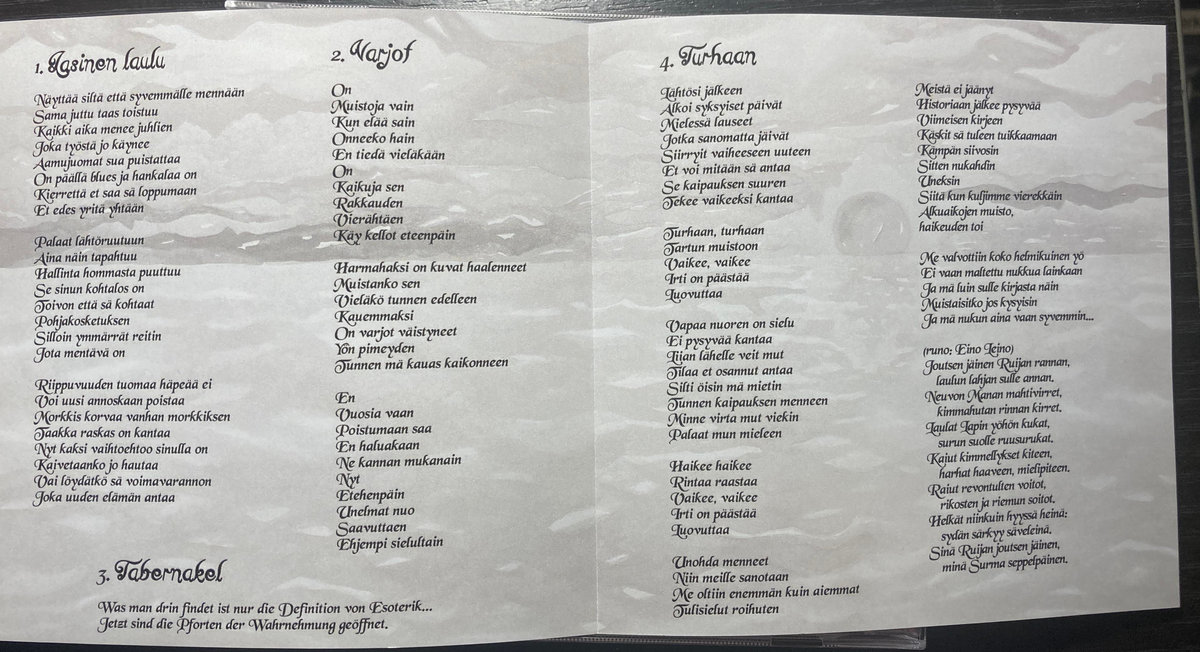 1. Lasinen laulu
Näyttää siltä että syvemmälle mennään
Sama juttu taas toistuu
Kaikki aika menee juhlien
Joka työstä jo käynee
Aamujuomat sua puistattaa
On päällä blues ja hankalaa on
Kierrettä et saa sä loppumaan
Et edes yritä yhtään
Palaat lähtöruutuun
Aina näin tapahtuu
Hallinta hommasta puuttuu
Se sinun kohtalos on
Toivon että sä kohtaat
Pohjakosketuksen
Silloin ymmärrät reitin
Jota mentävä on
Riippuvuuden tuomaa häpeää ei
Voi uusi annoskaan poistaa
Morkkis korvaa vanhan morkkiksen
Taakka raskas on kantaa
Nyt kaksi vaihtoehtoo sinulla on
Kaivetaanko jo hautaa
Vai löydätkö sä voimavarannon
Joka uuden elämän antaa
2. Varjot
On
Muistoja vain
Kun elää sain
Onneeko hain
En tiedä vieläkään
On
Kaikuja sen
Rakkauden
Vierähtäen
Käy kellot eteenpäin
Harmahaksi on kuvat haalenneet
Muistanko sen
Vieläkö tunnen edelleen
Kauemmaksi
On varjot väistyneet
Yön pimeyden
Tunnen mä kauas kaikonneen
En
Vuosia vaan
Poistumaan saa
En haluakaan
Ne kannan mukanain
Nyt
Etehenpäin
Unelmat nuo
Saavuttaen
Ehjempi sielultain
3. Tabernakel
Was man drin findet ist nur die Definition von Esoterik...
Jetzt sind die Pforten der Wahrnehmung geöffnet.
4. Turhaan
Lähtösi jälkeen
Alkoi syksyiset päivät
Mielessä lauseet
Jotka sanomatta jäivät
Siirryit vaiheeseen uuteen
Et voi mitään sä antaa
Se kaipauksen suuren
Tekee vaikeeksi kantaa
Turhaan, turhaan
Tartun muistoon
Vaikee, vaikee
Irti on päästää
Luovuttaa
Vapaa nuoren on sielu
Ei pysyvää kantaa
Liian lähelle veit mut
Tilaa et osannut antaa
Silti öisin mä mietin
Tunnen kaipauksen menneen
Minne virta mut viekin
Palaat mun mieleen
Haikee haikee
Rintaa raastaa
Vaikee, vaikee
Irti on päästää
Luovuttaa
Unohda menneet
Niin meille sanotaan
Me oltiin enemmän kuin aiemmat
Tulisielut roihuten
Meistä ei jäänyt
Historiaan jälkee pysyvää
Viimeisen kirjeen
Käskit sä tuleen tuikkaamaan
Kämpän siivosin
Sitten nukahdin
Uneksin
Siitä kun kuljimme vierekkäin
Alkuaikojen muisto,
haikeuden toi
Me valvottiin koko helmikuinen yö
Ei vaan maltettu nukkua lainkaan
Ja mä luin sulle kirjasta näin
Muistaisitko jos kysyisin
Ja mä nukun aina vaan syvemmin...
(runo: Eino Leino)
Joutsen jäinen Ruijan rannan,
laulun lahjan sulle annan.
Neuvon Manan mahtivirret,
kimmahutan rinnan kirret.
Laulat Lapin yöhön kukat,
surun suolle ruusurukat.
Kaiut kimmellykset kiteen,
harhat haaveen, mielipiteen.
Raiut revontulten voitot,
rikosten ja riemun soitot.
Helkät niinkuin hyyssä heinä:
sydän särkyy säveleinä.
Sinä Ruijan joutsen jäinen,
minä Surma seppelpäinen.